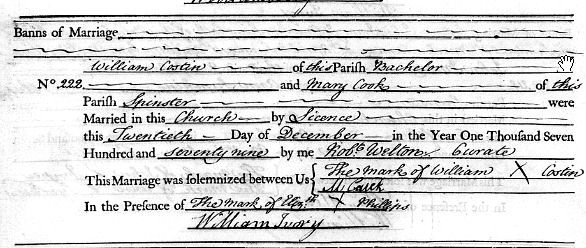 Banns of Marriage
William Costin of this Parish Bachelor
No. 222 and Mary Cook of this
Parish Spinster were
Married in this Church by Licence
this Twentieth Day of December in the Year One Thousand Seven
Hundred and seventy nine by me Robt. Welton Curate
This Marriage was solemnized between Us { The mark of William X Costin
M Cook
In the Presence of The mark of Elizth X Phillips
William Ivory